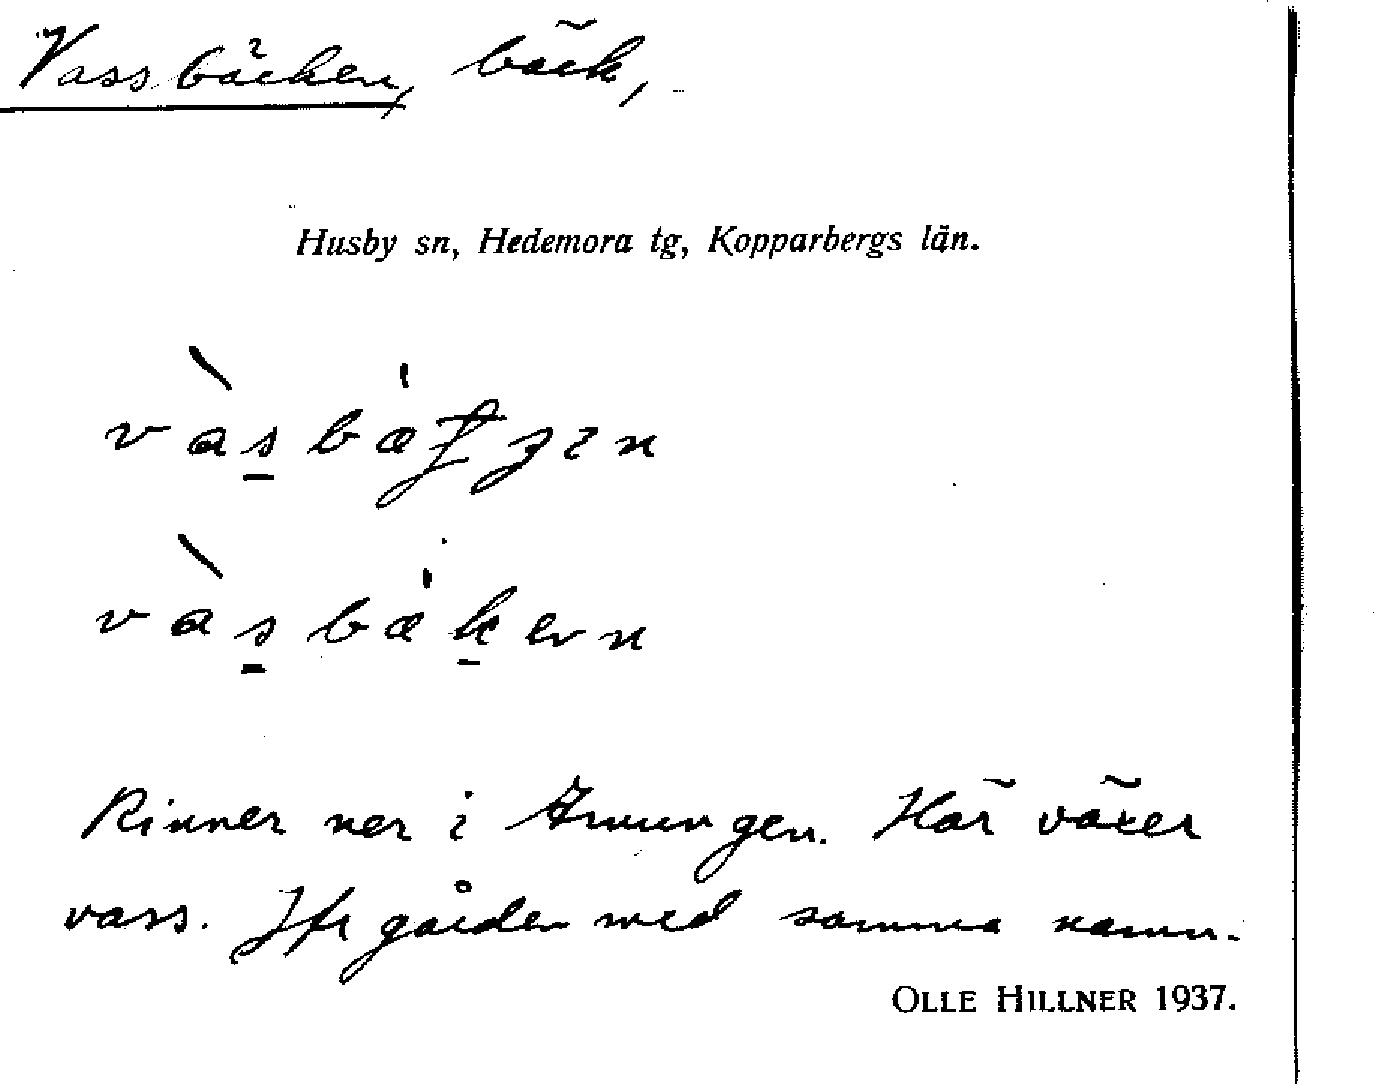 Vassbäcken, bäck,
Husby sn, Hedemora tg, Kopparbergs län.
Rinner ner i Amungen. Här växer
vass. Jfr gården med samma namn.
OLLE HILLNER 1937.